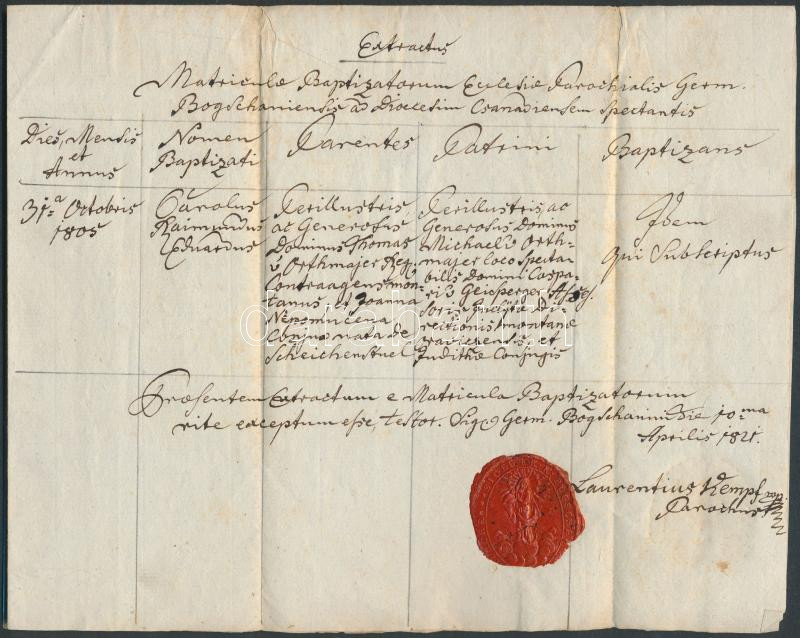 Extractus
Matriculæ Baptizatorum Eclesiæ Parochialis Germ.
Bogschaniensis ad Dioecesim Csanadiensem Spectantis
Dies, Mensis
et
Annus
Nomen
Baptizati
Parentes
Patrini
Baptizans
31a Octobris
1805
Carolus
Raimundus
Eduardus
Perillustris,
ac Generosus
Dominus Thomas
v Orthmajer Reg.
Contraagens mon-
tanus, et Joanna
Nepomucena
Conjux nata de
Scheichenstuel
Perillustris, ac
Generosus Dominus
Michael v Orth-
majer loco Specta-
bilis Domini Caspa-
ris Geisperger Asses-
soris Inclytæ Di-
rectionis montanæ
oraviczensis, et
Judithæ Conjugis
Idem
qui Subscriptus
Præsentem Extractum e Matricula Baptizatorum
rite exceptum esse, testor. Sig. Germ. Bogschanii die 10ma
Aprilis 1821.
Laurentius Kempf mp.
Parochus